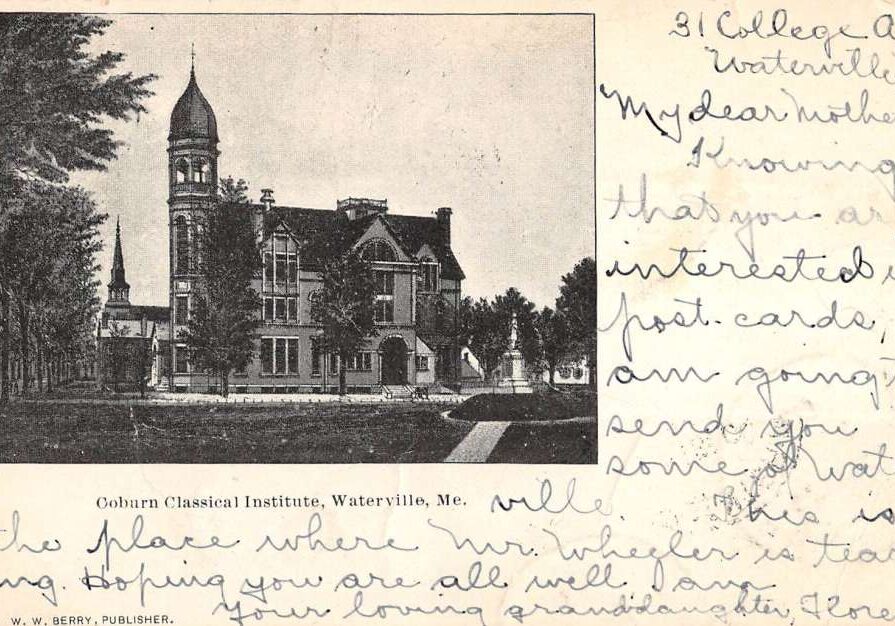 31 College A
Waterville
My dear Mothe
Knowing
that you ar
interested i
post-cards,
am going t
send you
some of Wat
Coburn Classical Institute, Waterville, Me.
ville. This is
the place where Mr. Wheeler is teac
ng. Hoping you are all well I am
Your loving granddaughter, Flore
W. W. BERRY, PUBLISHER.